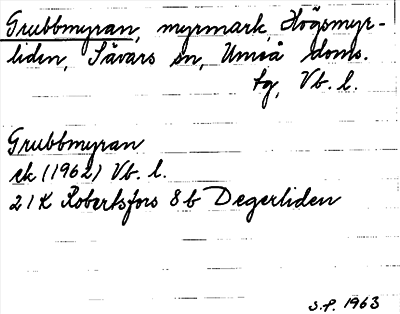 Grubbmyran, myrmark, Högsmyr-
liden, Sävars sn, Umeå doms.
tg, Vb. l.
Grubbmyran
ek (1962) Vb. l.
21K Robertsfors 8b Degerliden
S.P. 1963